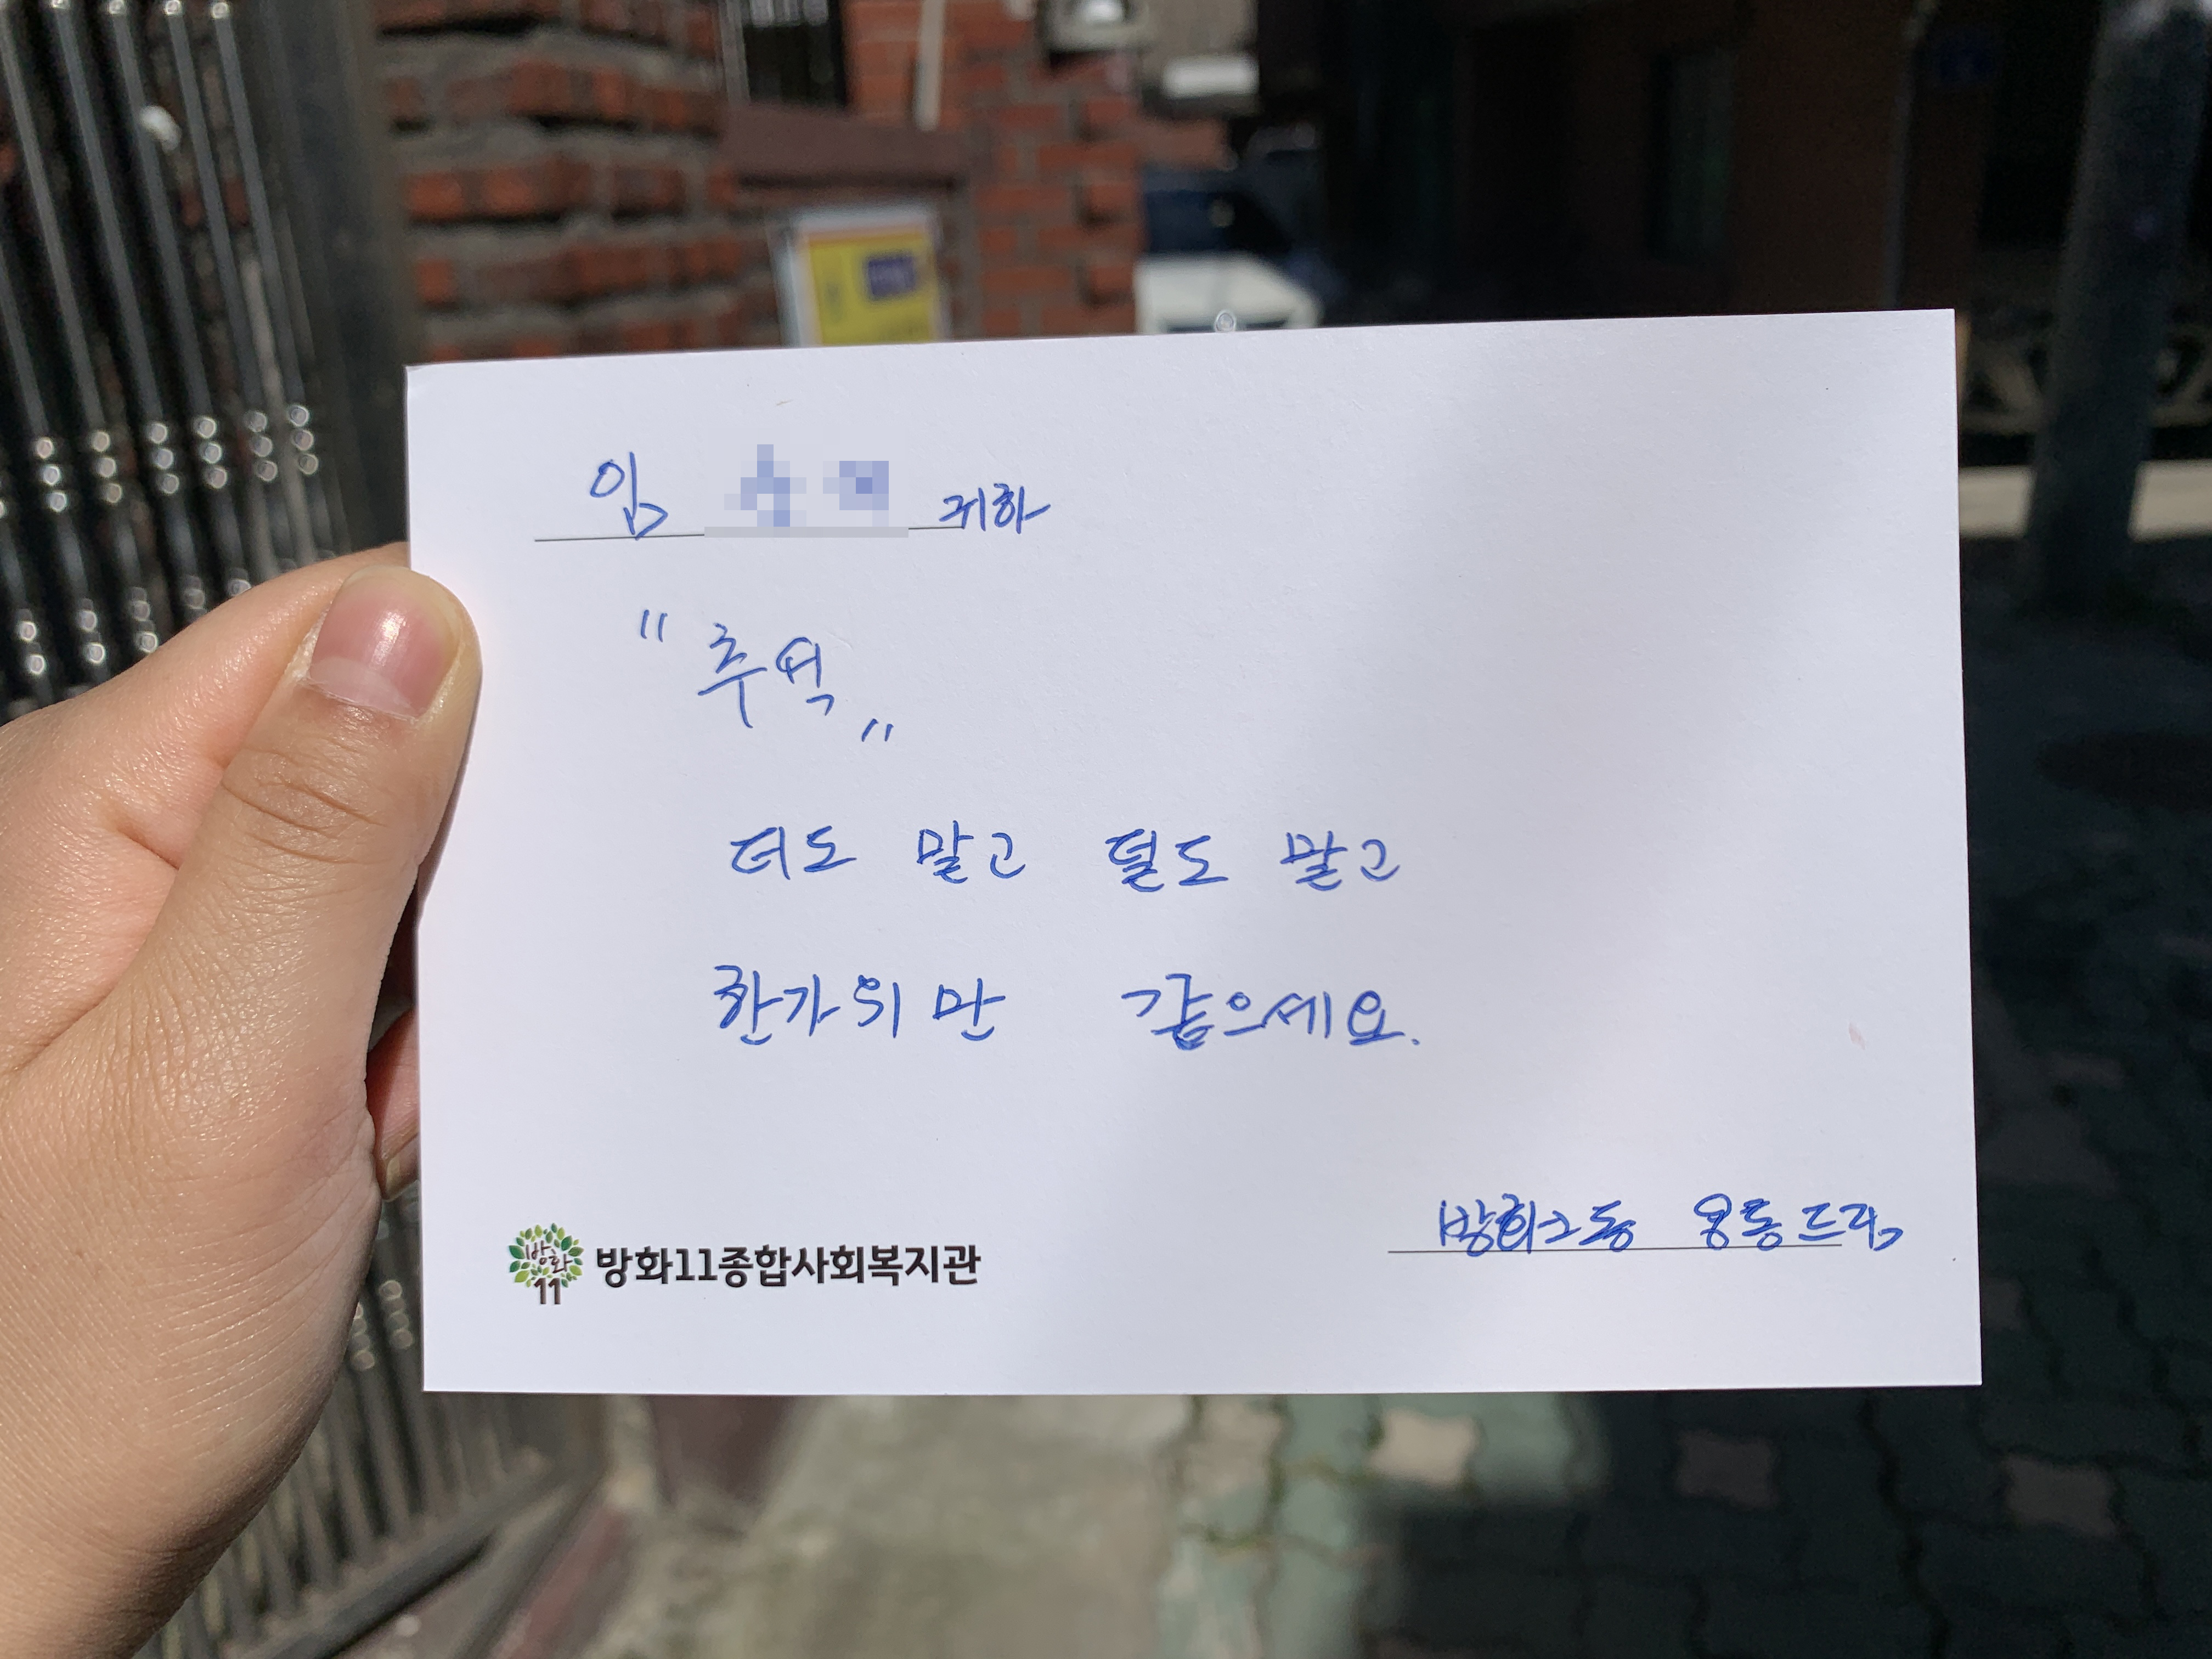 임 귀하
"추석"
더도 말고 덜도 말고
한가위만 같으세요.
방화2동 웅통드림
방화11종합사회복지관
방화
11